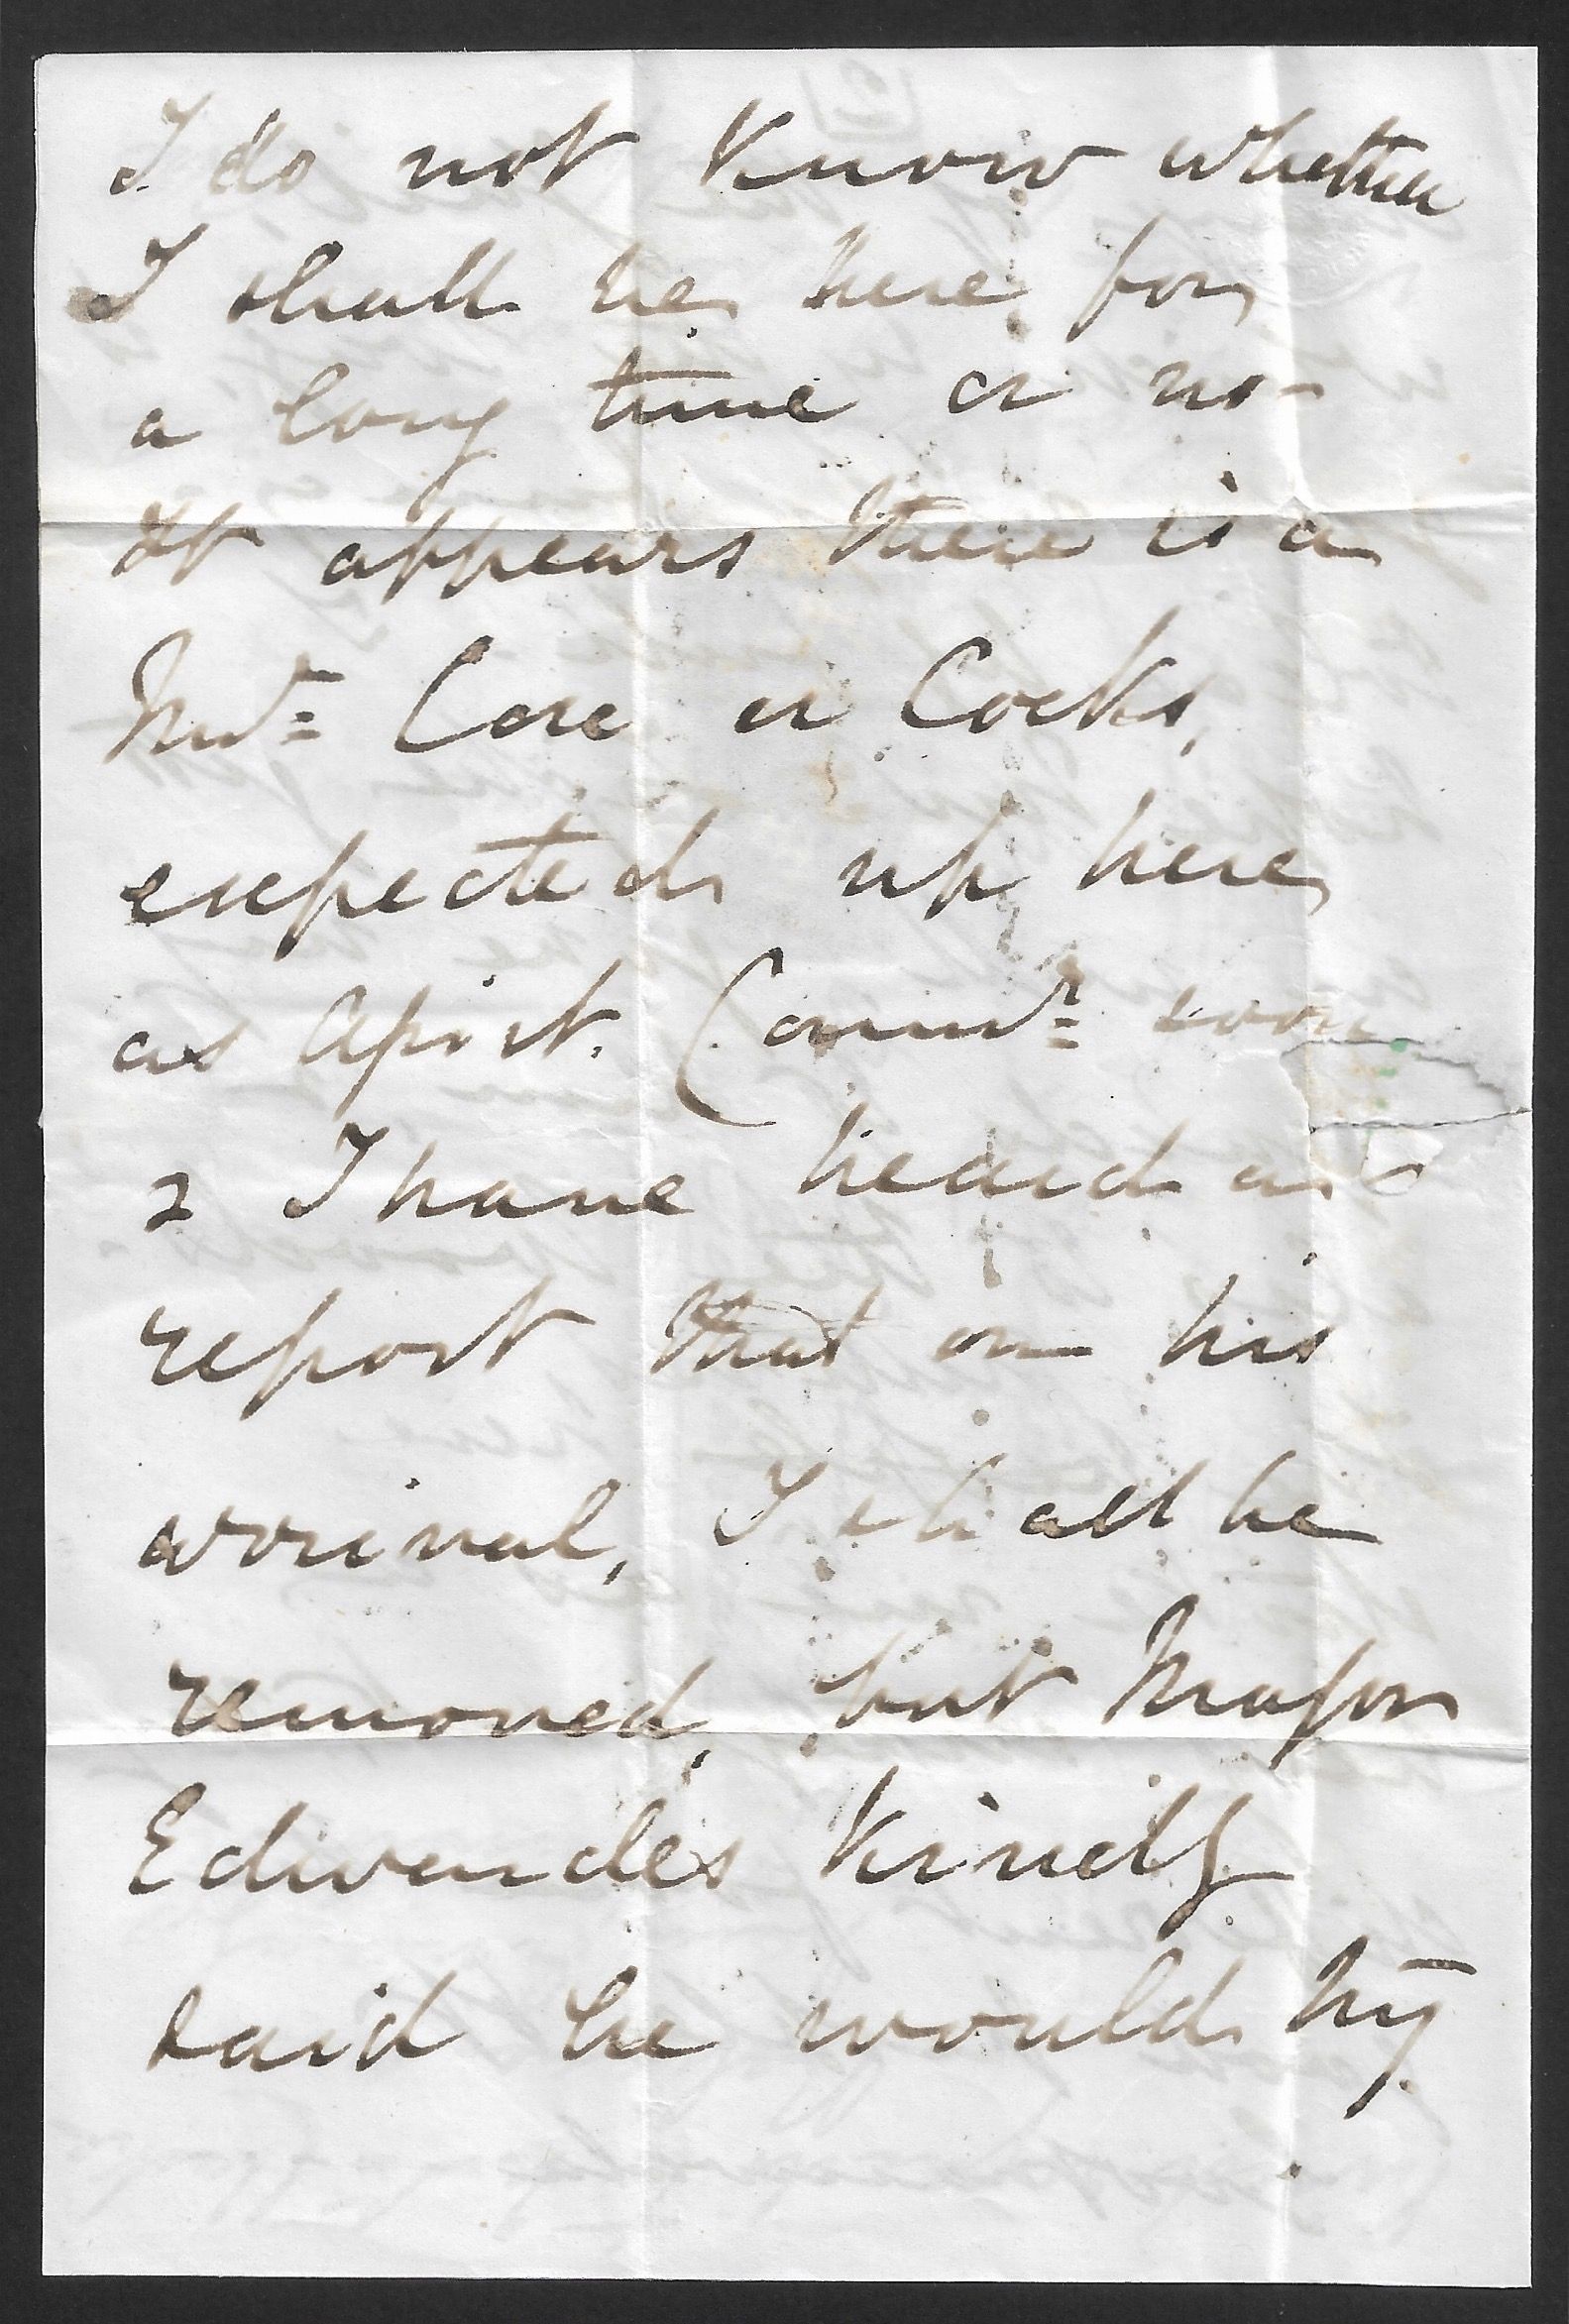 I do not know whether
I shall be here for
a long time or no
It appears there is a
Mr. Coxe or Cocks,
expected up here
as Apist. Commr. soon
& I have heard a
report that on his
arrival, I shall be
removed, but Major
Edwardes kindly
said he would try